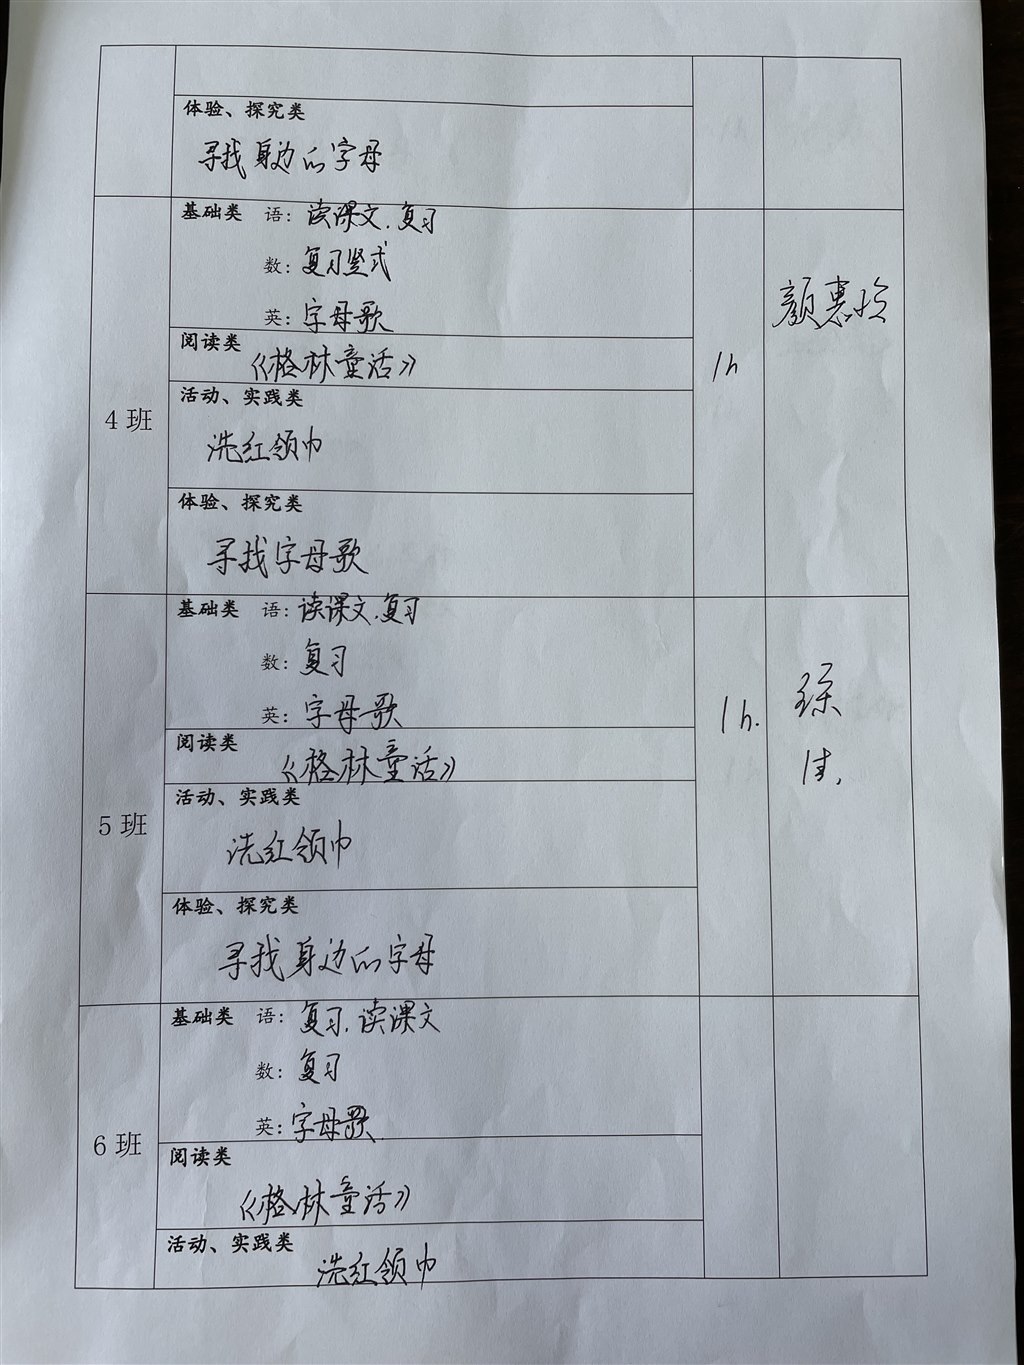 体验、探究类
寻找身边的字母
基础类 语: 读课文.复习
数: 复习竖式
英: 字母歌
阅读类
《格林童话》
活动、实践类
洗红领巾
体验、探究类
寻找字母歌
4班
1h
颜惠玲
基础类 语: 读课文.复习
数: 复习
英: 字母歌
阅读类
《格林童话》
活动、实践类
洗红领巾
体验、探究类
寻找身边的字母
5班
1h.
基础类 语: 复习.读课文
数: 复习
英: 字母歌
阅读类
《格林童话》
活动、实践类
洗红领巾
6班